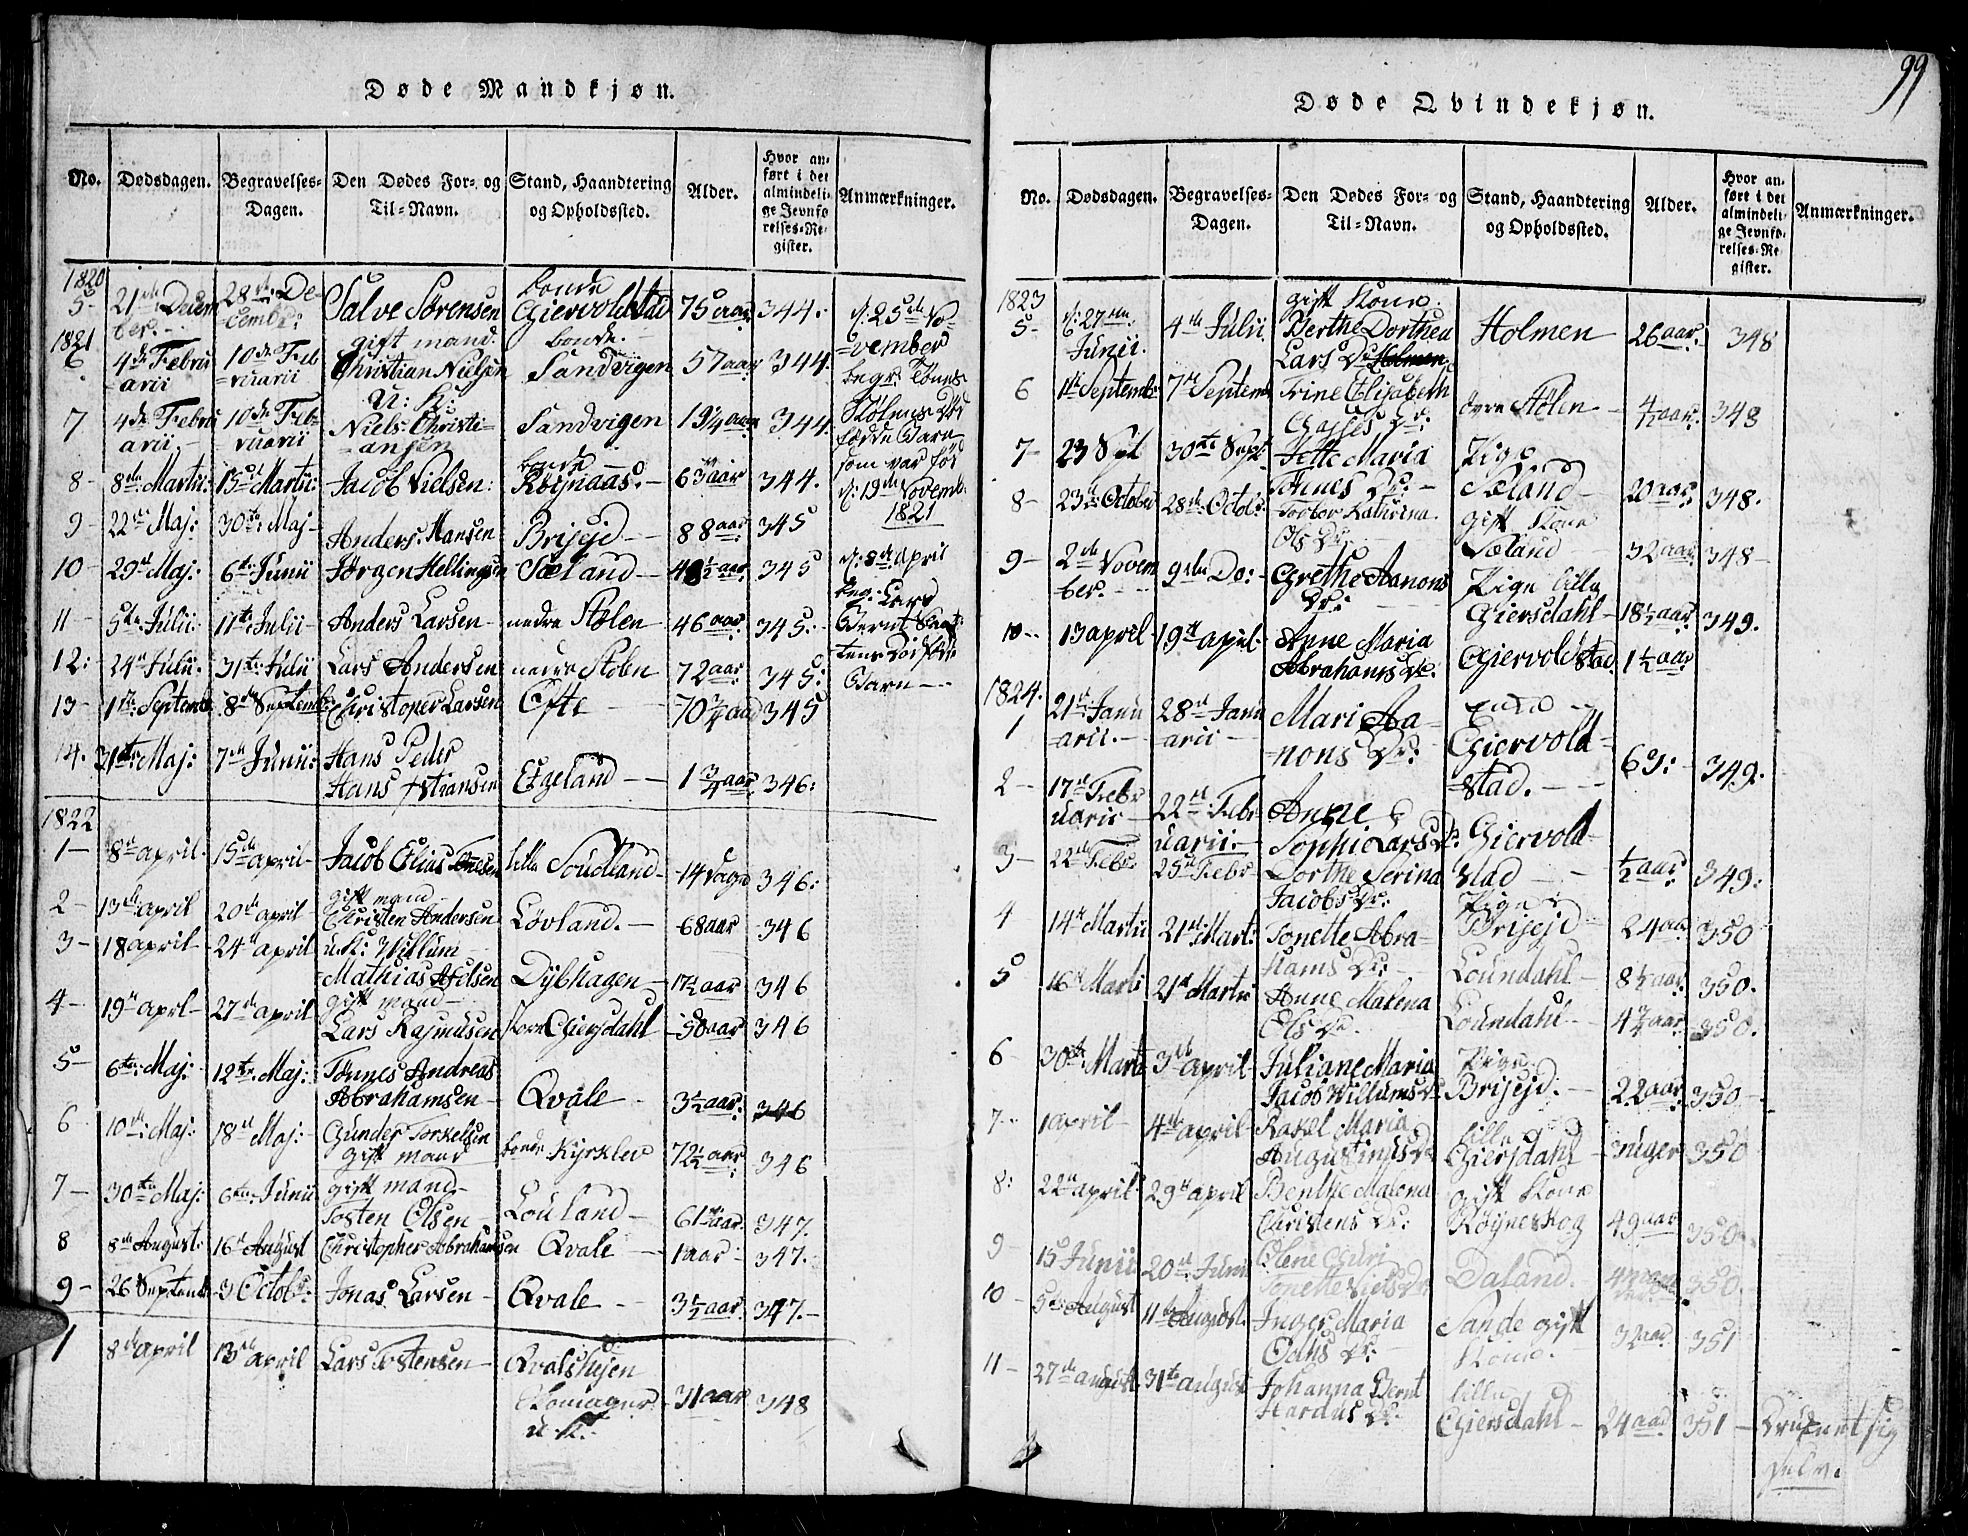 Døde Mandkjøn.
No. Dødsdagen. Begravelses-Dagen. Den Dødes For- og Til-Navn. Stand, Haandtering og Opholdssted. Alder. Hvor anført i det almindelige Jevnførelses-Register. Anmærkninger.
1820
5- 21de Decem ber: 28de De-cembr: Salve Sørensen bonde Giervoldstad 75 aar 344.
1821
6 4de Febru arii 10de Feb ruarii gift mand. Christian Nielsen bonde. Sandvigen 57 aar 344.
7 4de Febru arii 10de Feb ruarii U: K: Niels Christi-ansen Sandvigen 19¼ aar 344.
8- 8de Martii 15de Martii Jacob Nielsen: bonde Røynaas 63 aar 344.
9- 22de Maj: 30te Maj- Anders Hansen Brisejd 88 aar 345
10- 29de Maj: 6te Junii Jørgen Hellingsen Sæland- 48½ aar 345
11- 5de Julii: 11te Julii- Anders Larsen- nedre Stølen 46 aar: 345.
12: 24de Julii. 31te Julii Lars Andersen nedre Stølen 72 aar 345:
13- 1te Septemb 8de Septemb: Christopher Larsen Efte 70¾ aar 345
14. 31te Maj: 7de Junii: Hans Peder Hans Xstiansen Etzeland 1¾ aar 346:
d: 25de No-vember
begr:
som var fød
d: 19de Novemb.
1821
d: 8de April
beg: Lars
Barn
1822
1- 8de april 15de april Jacob Elias Tønesen lille Soudland 14 Dage 346:
2- 13de april 20de april gift mand Christen Andersen Lövland. 68 aar 346
3- 18 april 24de april u.K: Willum Mathias Nielsen Dybhagen 17½ aar 346
4- 19de aprl 27de april gift mand Lars Rasmusen store Giersdahl 50 aar 346
5- 6te Maj: 12te Maj: Tønnes Andreas Abrahamsen Qvale 3½ aar: 346
6 10de Maj: 18de Maj: Gunder Torkelsen gift mand bonde Kyrklev 72½ aar 346
7- 30te Maj: 6te Junii gift mand Tosten Olsen Louland 61 aar 347.
8 8de August: 16de August Christopher Abrahamsen Qvale 1 aar 347.
9- 26 Septemb 3 Octob: Jonas Larsen Qvale 3½ aar 347.
1 8de april 13de april Lars Tostensen Qvalshejen Skomager u.K. 31 aar 348
99
Døde Qvindekjøn.
No. Dødsdagen. Begravelses-Dagen. Den Dødes For- og Til-Navn. Stand, Haandtering og Opholdssted. Alder. Hvor anført i det almindelige Jevnførelses-Register. Anmærkninger.
1823
5- d: 27de Junii. 4de Julii gift Kone Berthe Dorthea Lars Dr Holmen Holmen 26 aar: 348
6 1te Septembr 7de Septemb Trine Elisabeth Dr: øvre Stølen 4½ aar. 348
7- 23 Sept 30te Sept Jette Maria Tønnes Dr: Pige Sæland 20 aar: 348.
8- 23de October 28de Octobr: Torbor Kathrina Ols Dr: gift Kone Sæland 32 aar 348
9- 2de Novem ber. 9de Do: Grethe Aanons Dr: Pige lille Giersdahl 18½ aar 349.
10- 13 april 19de april Anne Maria Abrahams Dr. Giervoldstad 1½ aar
1824.
1 21de Janu arii. 28de Janu arii Mari Aa-nons Dr: Enke Giervold-stad. 69: 349.
2- 17de Febr uarii 22de Febr uarii Anne Sophie Lars Dr. Giervold-stad ½ aar 349:
3- 22de Febr: 25de Febr Dorthe Serina Jacobs Dr: Pige Brisejd 24 aar 350
4 14de Martii 21de Mart: Tonette Abra-hams Dr: Loundahl 8½ aar 350.
5 16de Marti 21de Martii Anne Malena Ols Dr. Loundahl 4¾ aar 350.
6- 30te Martii 3de april Juliane Maria Jacob Willums Dr Pige Brisejd 22 aar 350
7- 1 april 4de april Rakel Maria Augustinus Dr lille Giersdahl 3 uger 350
8: 22de april 29de april Benthe Malena Christens Dr: gift Kone Røyneskog 49 aar 350
9- 15 Junii 20de Junii Olene Guri Tonette Niels Dr Daland. 350.
10- 5de August 11te August. Inger Maria Eds Dr: Sande gift Kone. 32 aar. 351
11- 27de august. 31te august Johanna Bernt Hardus Dr: lille Giersdahl 24 aar. 351 Druknet sig selv.